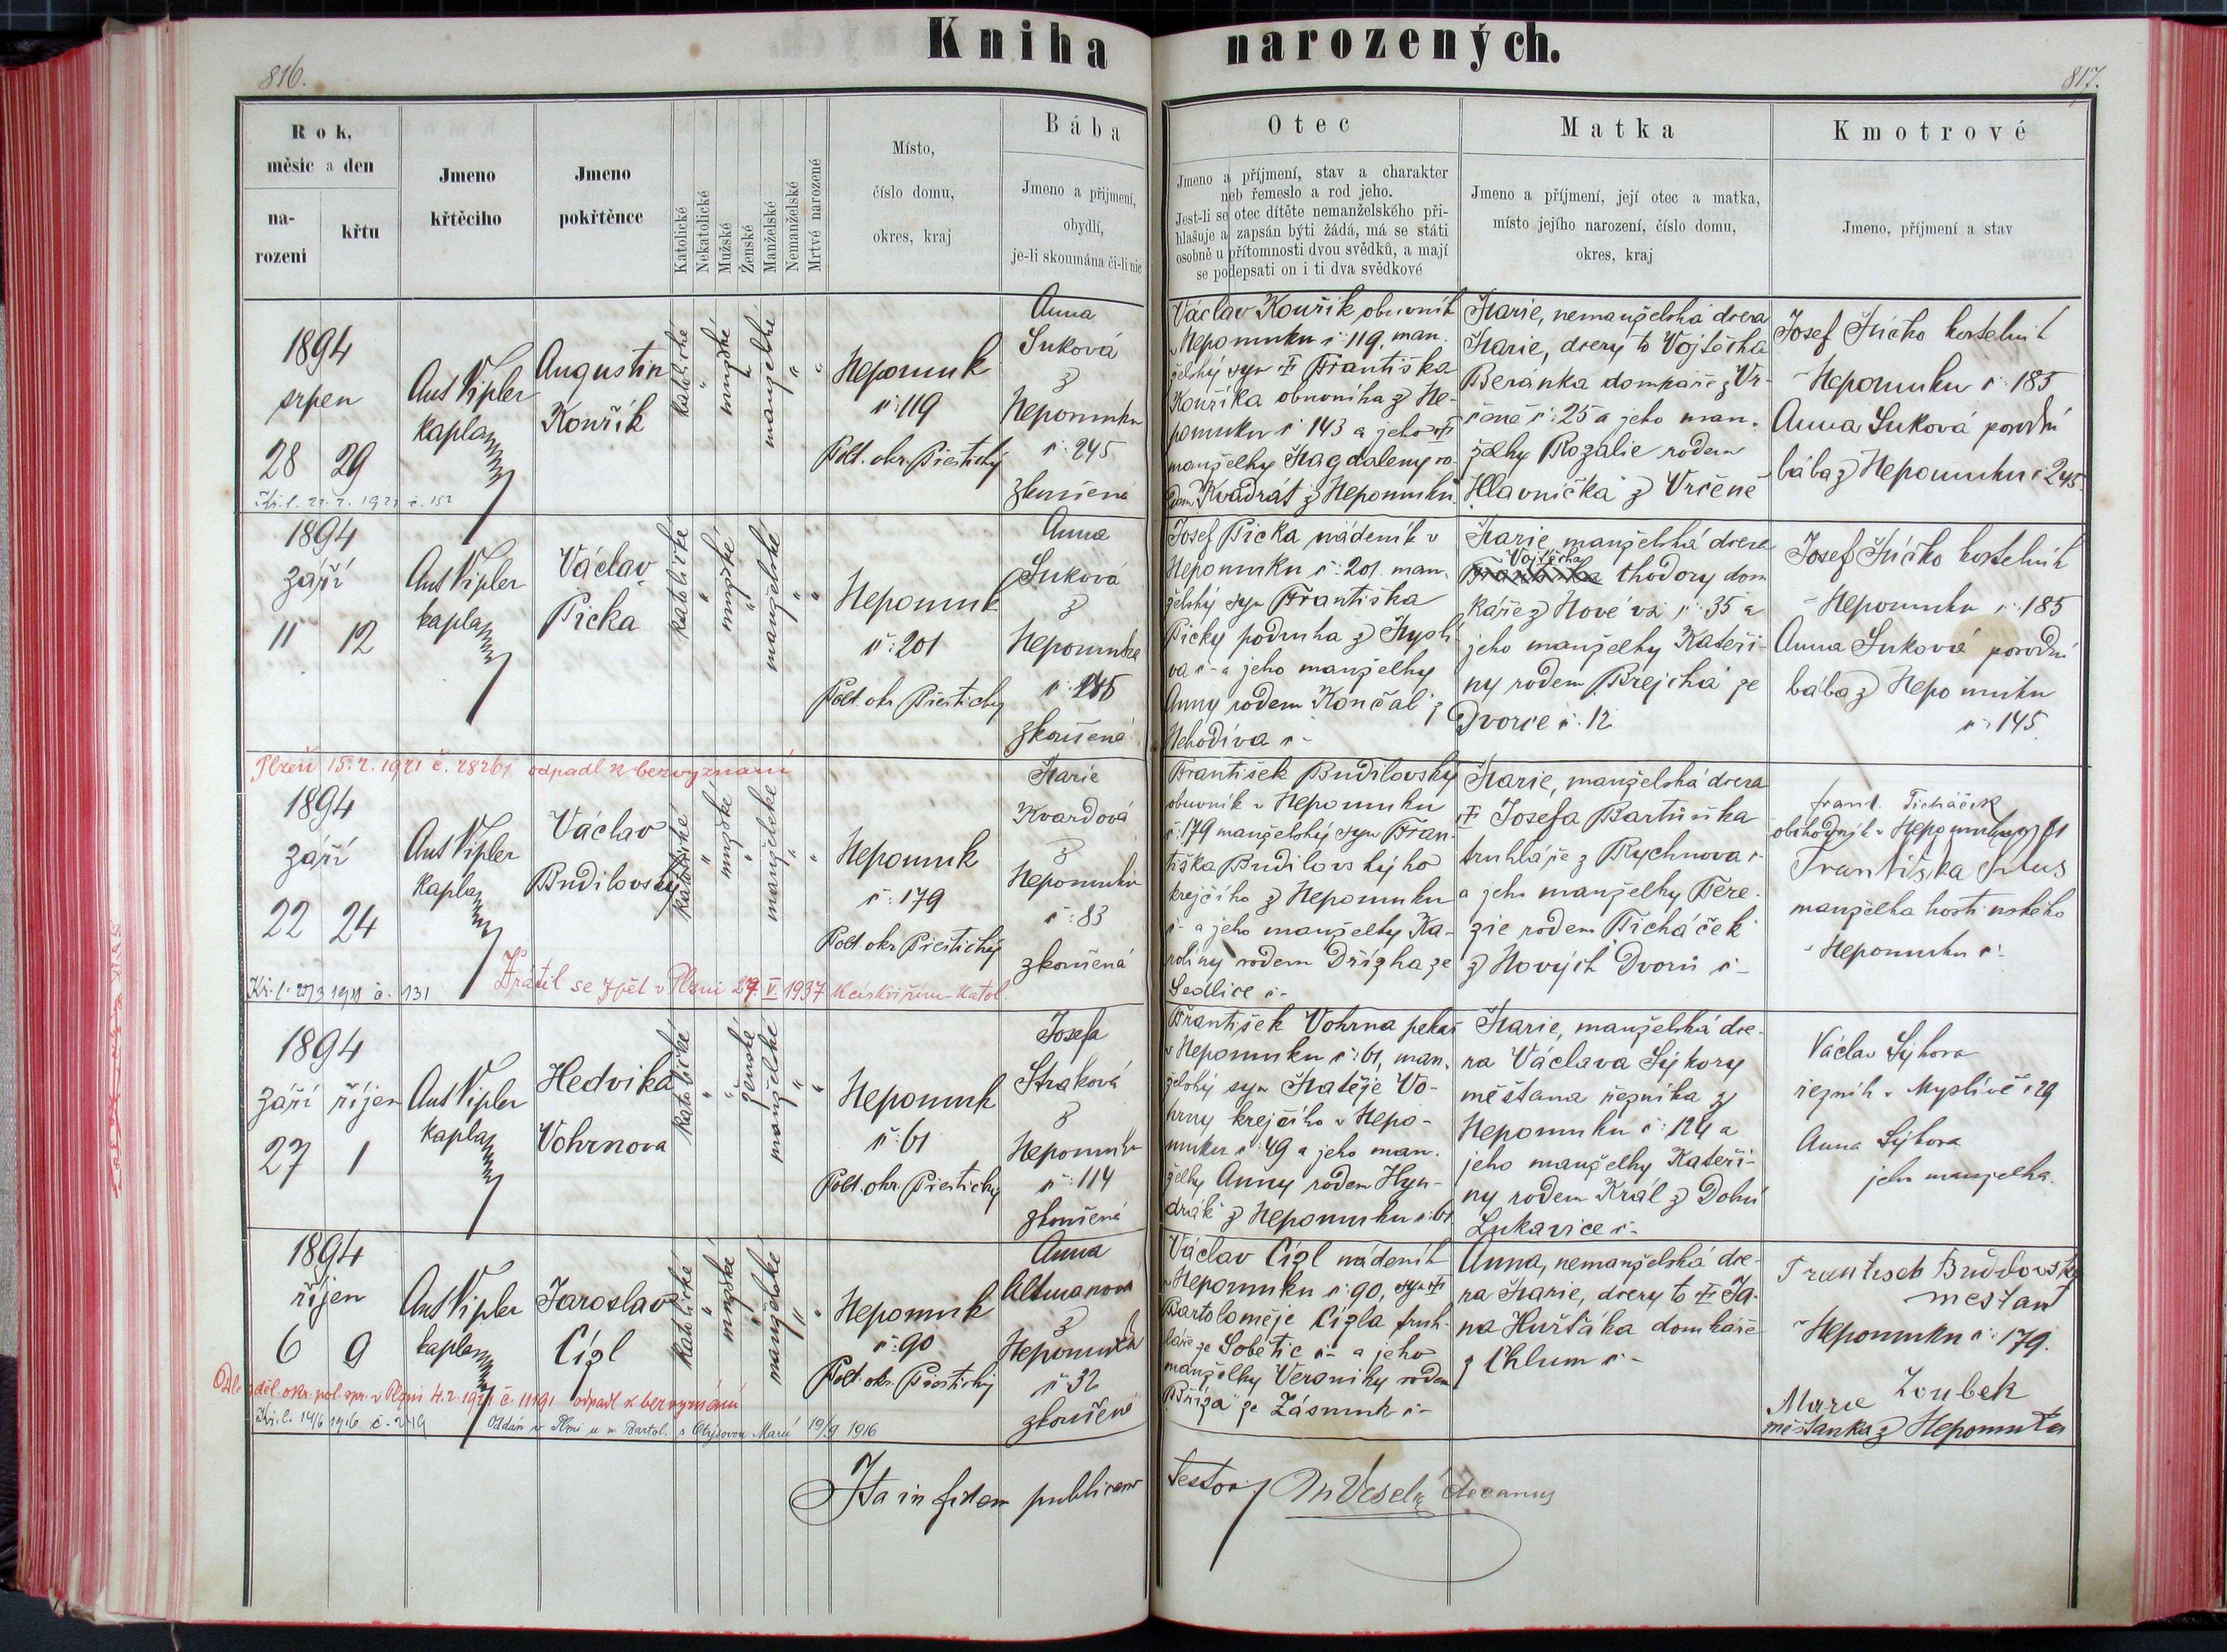 Kniha narozených.
816.
817.
Rok,
měsíc a den
na-
rození
křtu
Jmeno
křtěcího
Jmeno
pokřtěnce
Katolické
Nekatolické
Mužské
Ženské
Manželské
Nemanželské
Mrtvé narozené
Místo,
číslo domu,
okres, kraj
Bába
Jmeno a přijmení,
obydlí,
je-li skoumána či-li nic
Otec
Jmeno a příjmení, stav a charakter
neb řemeslo a rod jeho.
Jest-li se otec dítěte nemanželského při-
hlašuje a zapsán býti žádá, má se státi
osobně u přítomnosti dvou svědků, a mají
se podepsati on i ti dva svědkové
Matka
Jmeno a příjmení, její otec a matka,
místo jejího narození, číslo domu,
okres, kraj
Kmotrové
Jmeno, příjmení a stav
1894
srpen
28 29
Ant Vipler
kaplan
Augustin
Kouřík
katolické
"
mužské
"
manželské
"
"
Nepomuk
č: 119
Polit. okr. Přeštický
Anna
Suková
z
Nepomuku
č: 245
zkoušená
Václav Kouřík obuvník
v Nepomuku č: 119, man.
želský syn † Františka
Kouříka obuvníka z Ne-
pomuku č: 143 a jeho †
manželky Magdaleny ro-
dem Kvadrát z Nepomuku
Marie, nemanželská dcera
Marie, dcery to Vojtěcha
Beránka domkáře z Vr-
čeně č: 25 a jeho man.
želky Rozalie rodem
Hlavnička z Vrčeně
Josef Mičko kostelník
v Nepomuku č: 185
Anna Suková porodní
bába z Nepomuku č: 245
1894
září
11 12
Ant Vipler
kaplan
Václav
Picka
katolické
"
mužské
"
manželské
"
"
Nepomuk
č: 201
Polit. okr. Přeštický
Anna
Suková
z
Nepomuku
č: 245
zkoušená
Josef Picka nádeník v
Nepomuku č: 201. man.
želský syn Františka
Picky podruha z Mysli-
va č- a jeho manželky
Anny rodem Končal z
Nehodíva č-
Marie, manželská dcera
Vojtěcha
Chodory dom
káře z Nové vsi č: 35 a
jeho manželky Kateři-
ny rodem Brejcha ze
Dvorce č: 12
Josef Mičko kostelník
v Nepomuku č: 185
Anna Suková porodní
bába z Nepomuku
č: 145
Plzeň 15.2.1921 č. 28261 odpadl k bezvyznání
1894
září
22 24
Ant Vipler
kaplan
Václav
Budilovský
katolické
"
mužské
"
manželské
"
"
Nepomuk
č: 179
Polit. okr. Přeštický
Marie
Kvardová
z
Nepomuku
č: 83
zkoušená
Vrátil se zpět v Plzni 27. V. 1937
František Budilovský
obuvník v Nepomuku
č: 179 manželský syn Fran-
tiška Budilovského
krejčího z Nepomuku
č- a jeho manželky Ka-
roliny rodem Dřízha ze
Sedlice č-
Marie, manželská dcera
† Josefa Bartůňka
truhláře z Rychnova č-
a jeho manželky Tere-
zie rodem Ticháček
z Nových Dvorů č-
Frant. Ticháček
obchodník v Nepomuku
Františka
manželka hostinského
v Nepomuku č:
1894
září říjen
27 1
Ant Vipler
kaplan
Hedvika
Vohrnova
katolické
"
"
ženské
manželské
"
"
Nepomuk
č: 61
Polit. okr. Přeštický
Josefa
Straková
z
Nepomuku
č: 114
zkoušená
František Vohrna pekař
v Nepomuku č: 61, man.
želský syn Matěje Vo-
hrny krejčího v Nepo-
muku č: 49 a jeho man.
želky Anny rodem Hyn-
drák z Nepomuku č: 61
Marie, manželská dce-
ra Václava Sýkory
měšťana řezníka z
Nepomuku č: 124 a
jeho manželky Kateři-
ny rodem Král z Dolní
Lukavice č-
Václav Sýkora
řezník v Myslívě č 29
Anna Sýkora
jeho manželka.
1894
říjen
6 9
Ant Vipler
kaplan
Jaroslav
Cízl
katolické
"
mužské
"
manželské
"
"
Nepomuk
č: 90
Polit. okr. Přeštický
Anna
Altmanova
z
Nepomuku
č 32
zkoušená
Václav Cízl nádeník
v Nepomuku č: 90, syn †
Bartoloměje Cízla truh-
láře ze Sobětic č- a jeho
manželky Veroniky rodem
Bříza ze Zásmuk č-
Anna, nemanželská dce-
ra Marie, dcery to † Ja-
na Hušťáka domkáře
z Chlum č-
František Budilovský
mešťan
v Nepomuku č: 179.
Marie Zoubek
měšťanka z Nepomuka
okr. pol. spr. v Plzni 4.2.1921 č. 11191 odpadl k bezvyznání
Oddán v Plzni u sv. Bartol. s Marií 19/9 1916
Ita in fidem publicam
testor MVeselý decanus